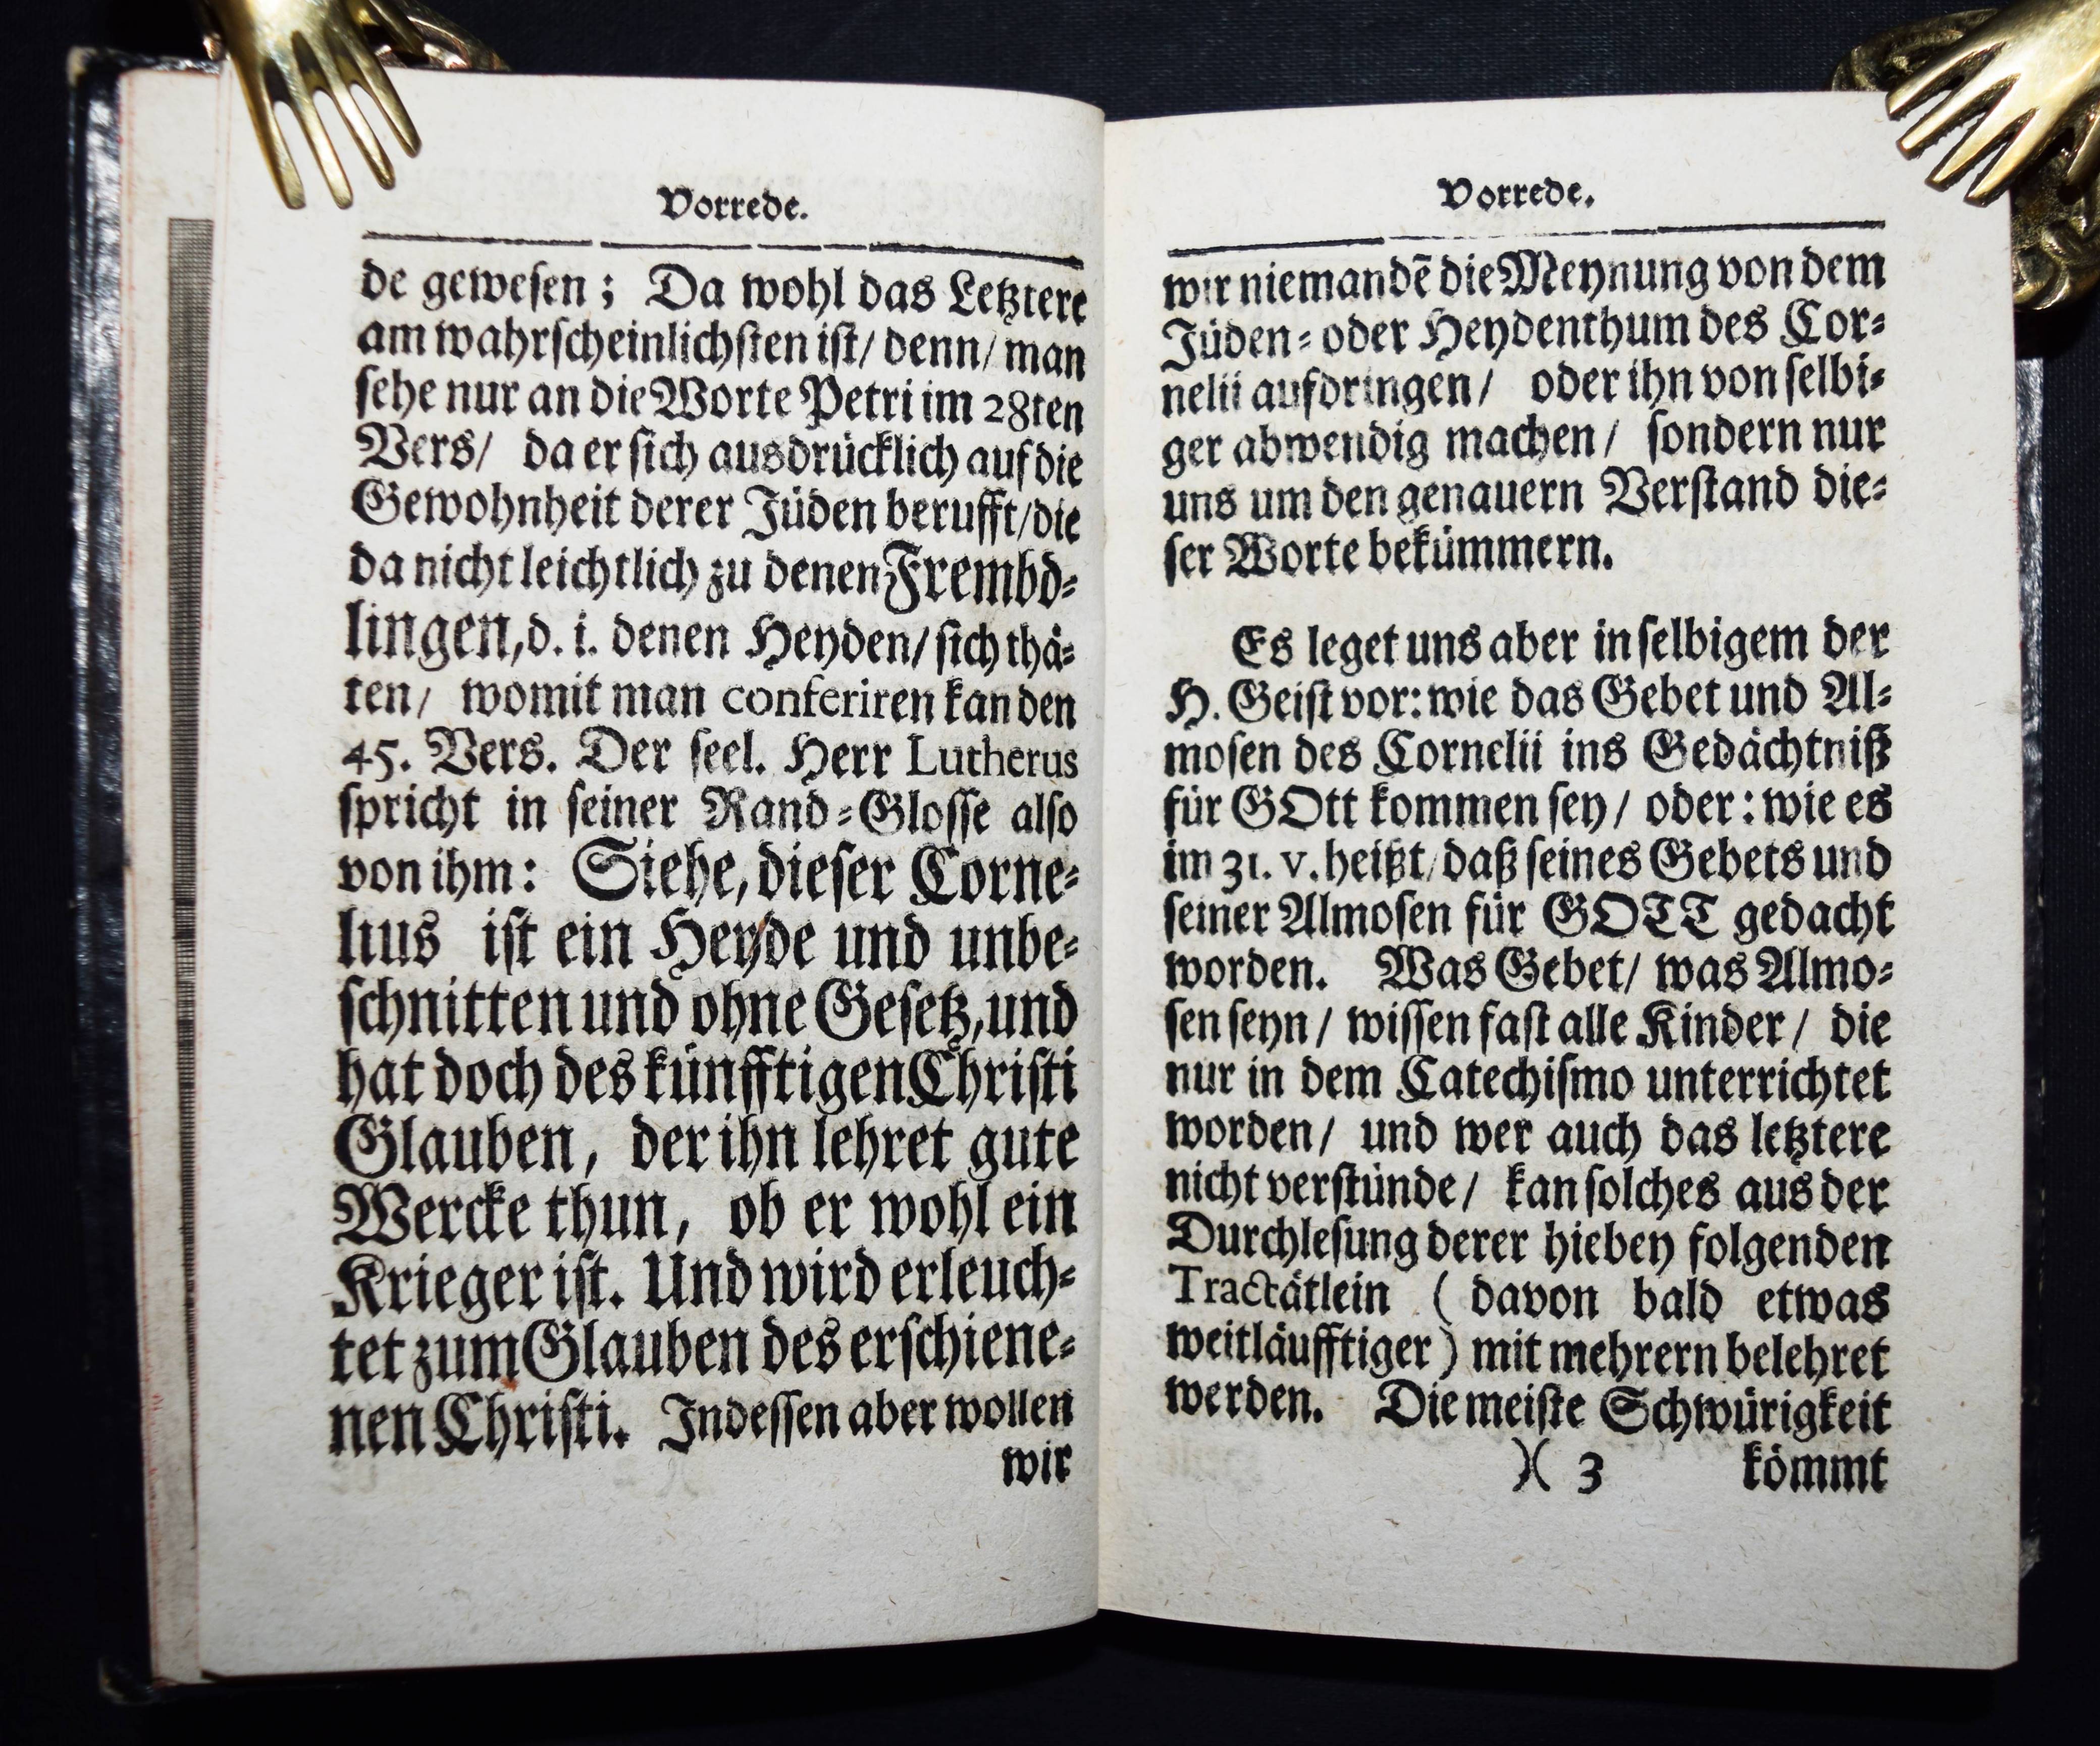 Vorrede.
de geweſen; Da wohl das Letztere
am wahrſcheinlichſten iſt/ denn/ man
ſehe nur an die Worte Petri im 28ten
Vers/ da er ſich ausdrücklich auf die
Gewohnheit derer Jüden berufft/die
da nicht leichtlich zu denen Frembd-
lingen, d. i. denen Heyden/ ſich thä-
ten/ womit man conferiren kan den
45. Vers. Der ſeel. Herr Lutherus
ſpricht in ſeiner Rand-Gloſſe alſo
von ihm: Siehe, dieſer Corne-
lius iſt ein Heyde und unbe-
ſchnitten und ohne Geſetz, und
hat doch des künfftigen Chriſti
Glauben, der ihn lehret gute
Wercke thun, ob er wohl ein
Krieger iſt. Und wird erleuch-
tet zum Glauben des erſchiene-
nen Chriſti. Indeſſen aber wollen
wir
Vorrede.
wir niemandē die Meynung von dem
Jüden- oder Heydenthum des Cor-
nelii aufdringen/ oder ihn von ſelbi-
ger abwendig machen/ ſondern nur
uns um den genauern Verſtand die-
ſer Worte bekümmern.
Es leget uns aber in ſelbigem der
H. Geiſt vor: wie das Gebet und Al-
moſen des Cornelii ins Gedächtniß
für GOtt kommen ſey/ oder: wie es
im 31. v. heißt/ daß ſeines Gebets und
ſeiner Almoſen für GOTT gedacht
worden. Was Gebet/ was Almo-
ſen ſeyn/ wiſſen faſt alle Kinder/ die
nur in dem Catechiſmo unterrichtet
worden/ und wer auch das letztere
nicht verſtünde/ kan ſolches aus der
Durchleſung derer hiebey folgenden
Tractätlein (davon bald etwas
weitläufftiger) mit mehrern belehret
werden. Die meiſte Schwürigkeit
)( 3 kömmt